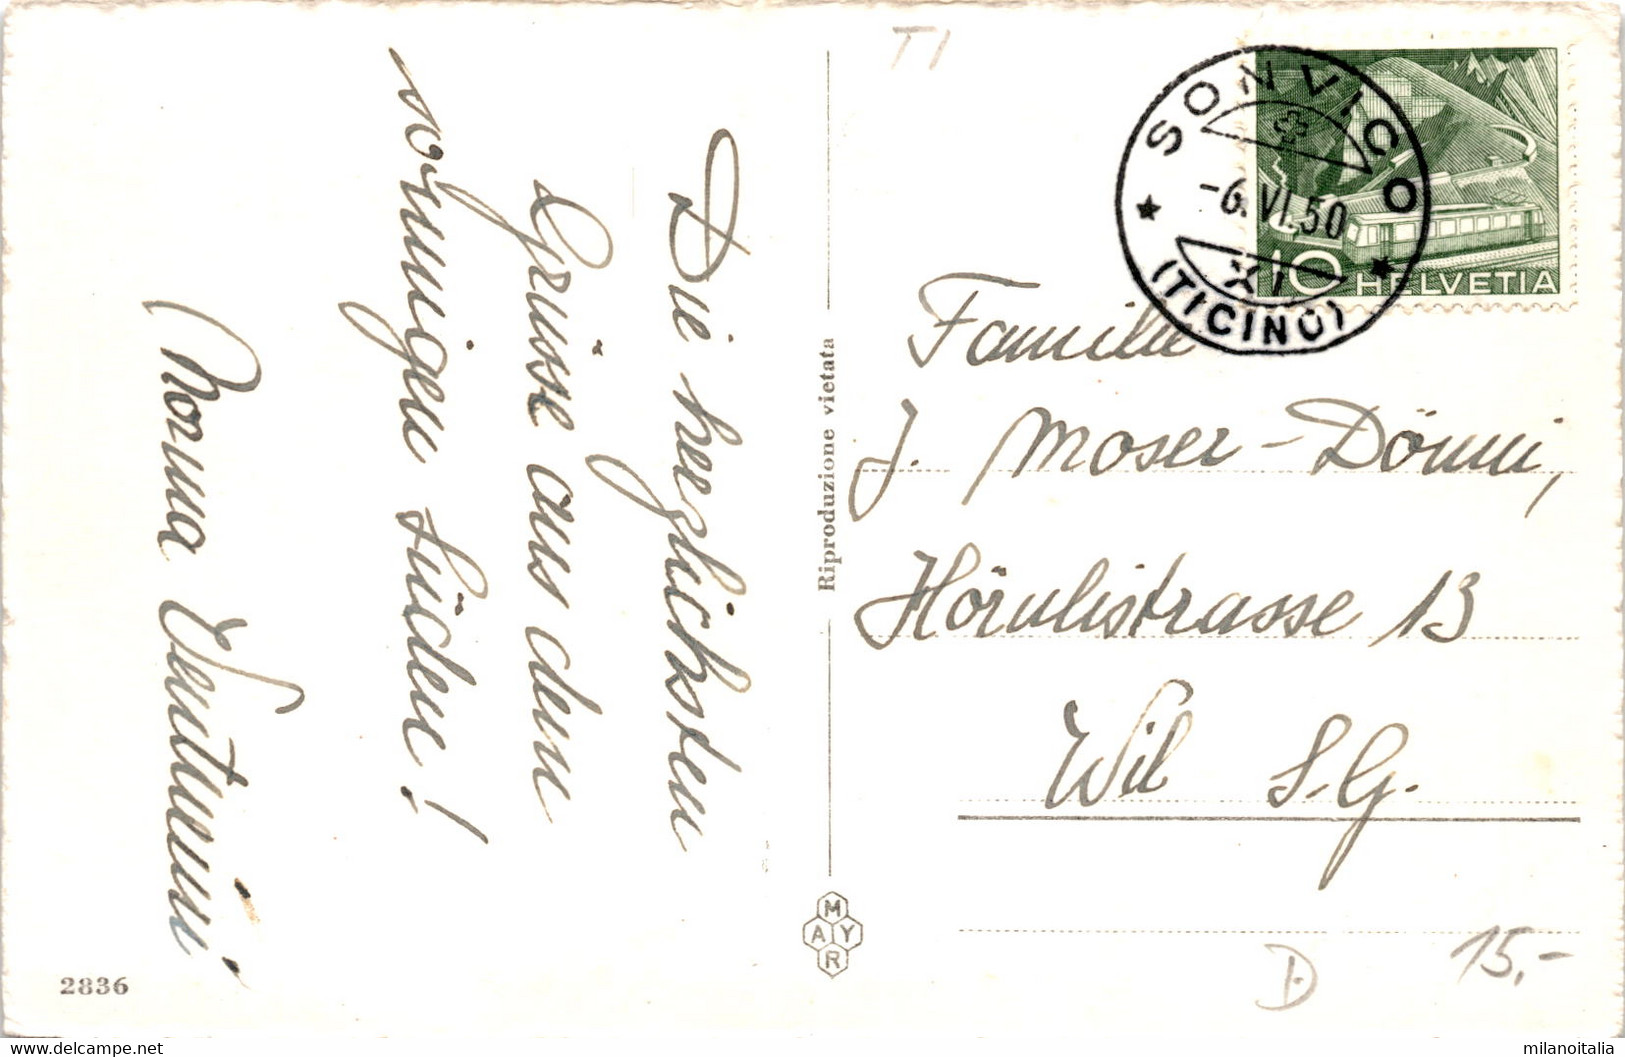 Die herzlichsten
Grüsse aus dem
sonnigen Süden!
Norma
TI
SONVICO
-6.VI.50
XI
(TICINO)
10 HELVETIA
Familie
J. Moser-Dönni,
Hörnlistrasse 13
Wil S.G.
Riproduzione vietata
MAYR
2836
D
15,-
milanoitalia